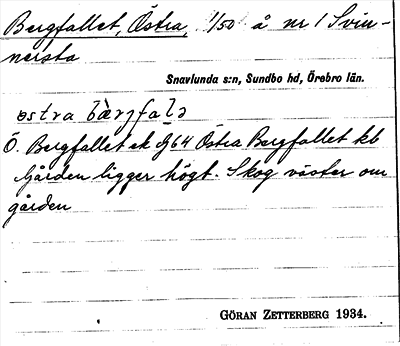 Bergfallet, Östra, 1/50 å nr 1 Svin-
nersta
Snavlunda s:n, Sundbo hd, Örebro län.
östra bàrjfalə
Ö. Bergfallet ek G64 Östra Bergfallet kb
Gården ligger högt. Skog väster om
gården
GÖRAN ZETTERBERG 1934.